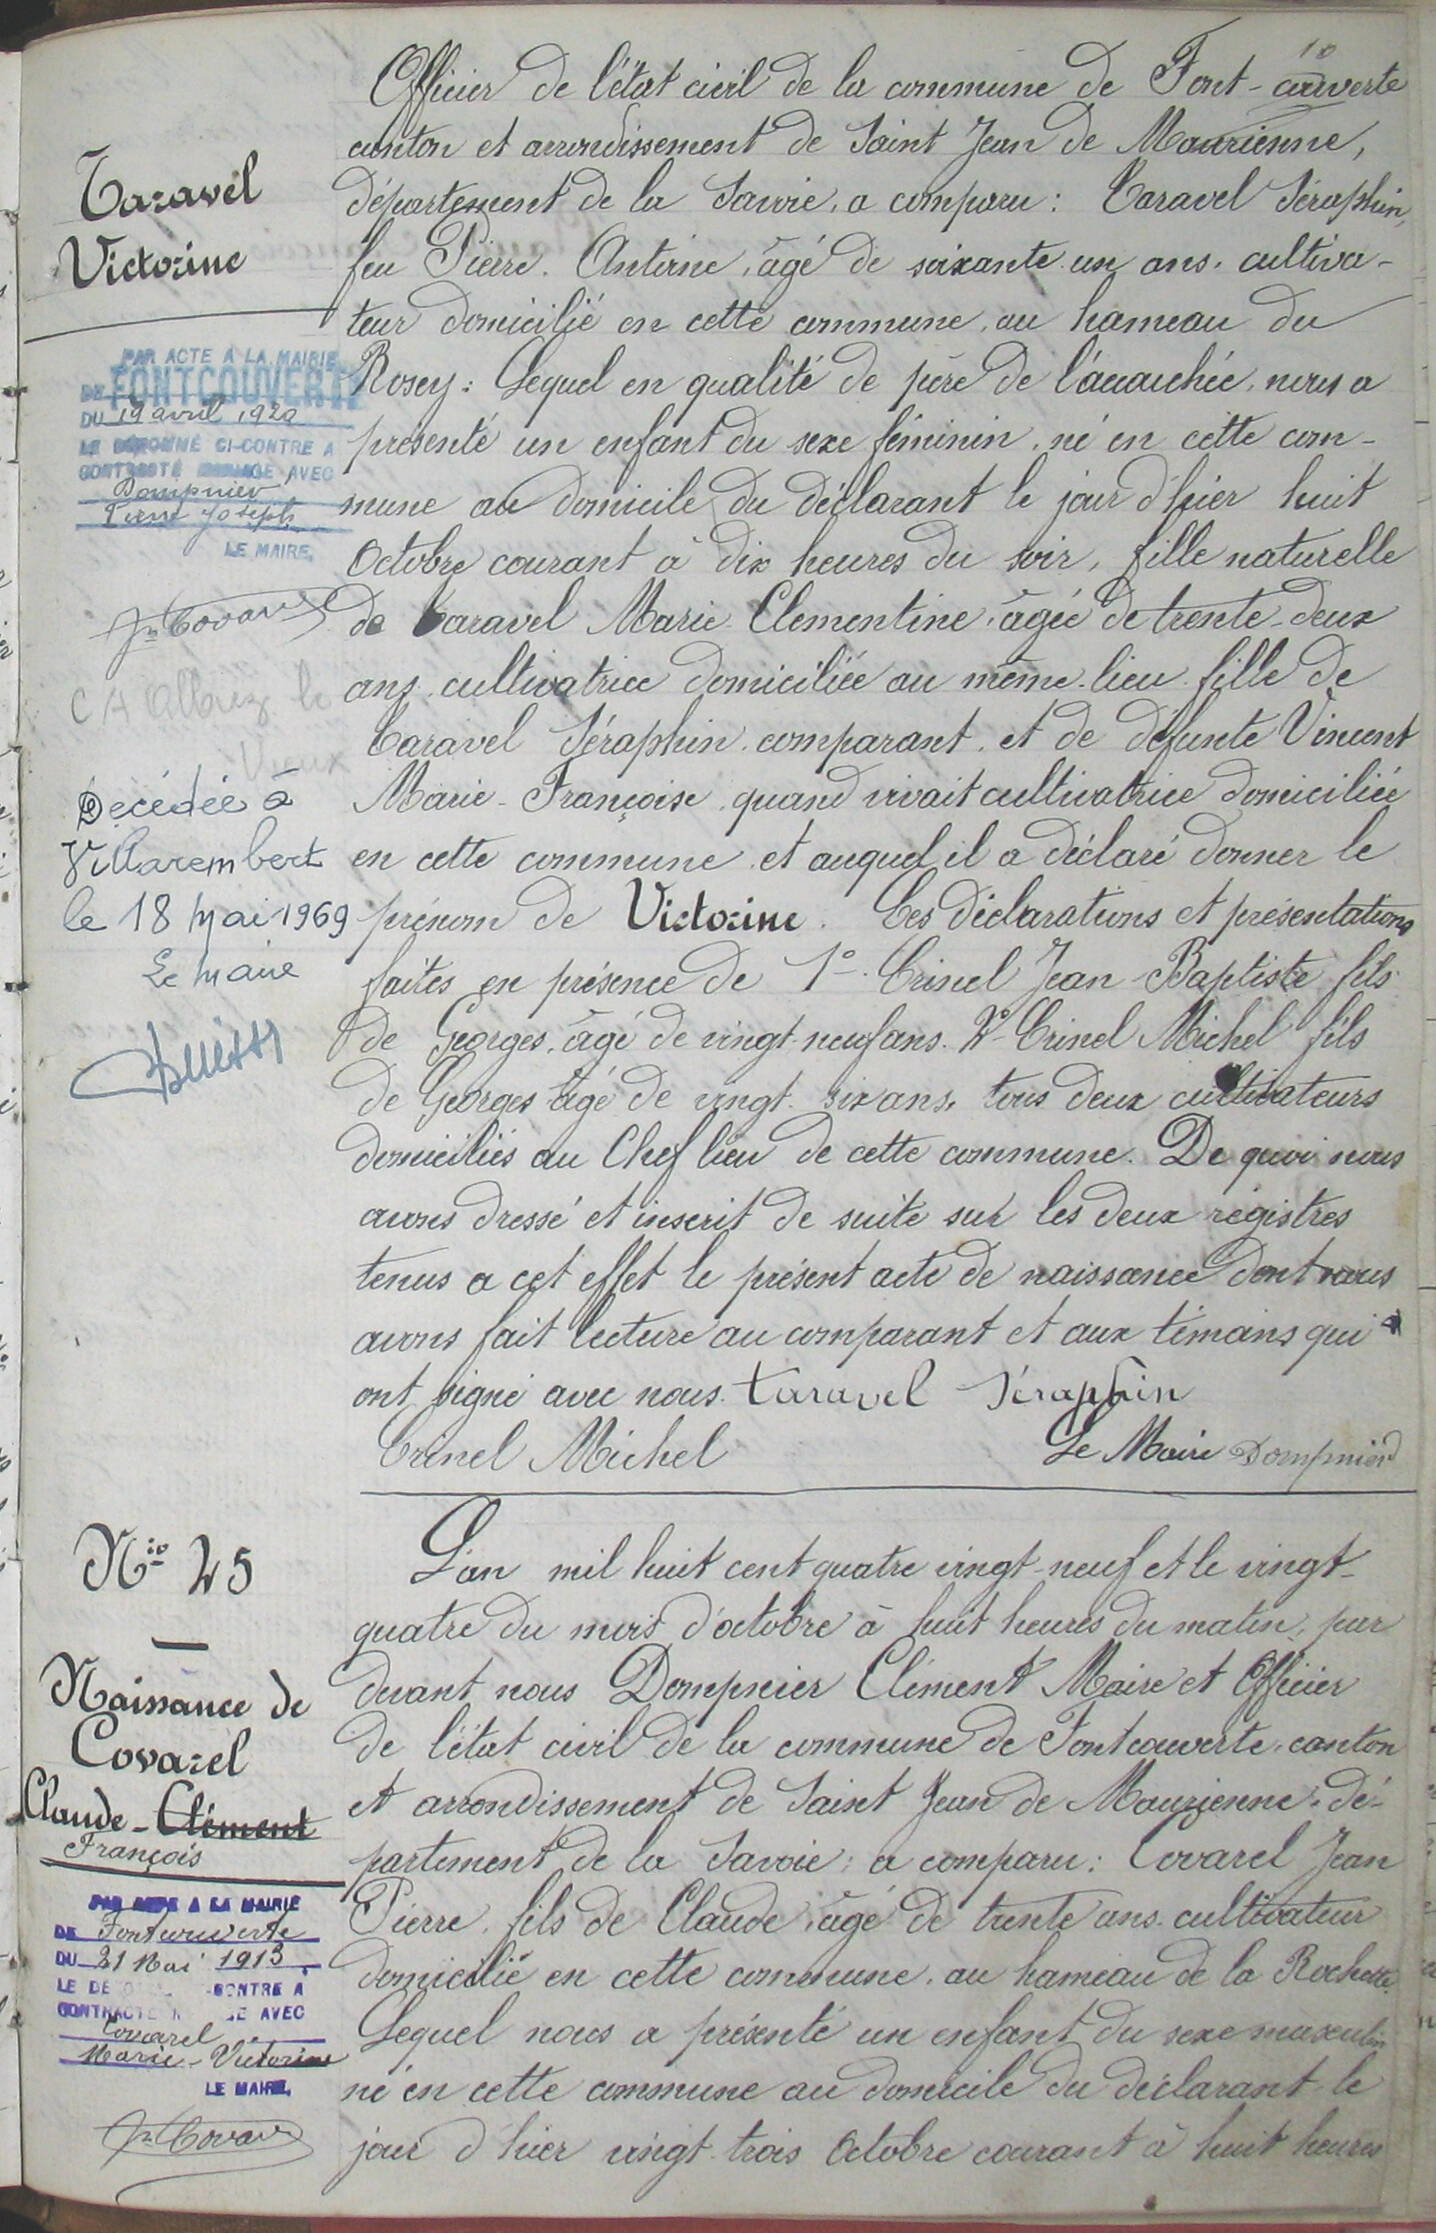 10
Officier de l'état civil de la commune de Font-couverte
canton et arrondissement de Saint Jean de Maurienne,
département de la Savoie, a comparu : Taravel Séraphin,
feu Pierre Antoine, âgé de soixante un ans, cultiva-
teur domicilié en cette commune, au hameau du
Rosey : Lequel en qualité de père de l'accouchée, nous a
présenté un enfant du sexe féminin, né en cette com-
mune au domicile du déclarant le jour d'hier huit
Octobre courant à dix heures du soir, fille naturelle
de Taravel Marie Clementine, âgée de trente-deux
ans, cultivatrice domiciliée au même lieu fille de
Taravel Séraphin, comparant, et de défunte Vincent
Marie-Françoise, quand vivait cultivatrice domiciliée
en cette commune et auquel il a déclaré donner le
prénom de Victorine. Ces déclarations et présentations
faites en présence de 1° Crinel Jean-Baptiste fils
de Georges, âgé de vingt-neuf ans. 2° Crinel Michel fils
de Georges âgé de vingt-six ans, tous deux cultivateurs
domiciliés au Chef lieu de cette commune. De quoi nous
avons dressé et inscrit de suite sur les deux régistres
tenus a cet effet le présent acte de naissance dont nous
avons fait lecture au comparant et aux témoins qui
ont signé avec nous. Taravel Séraphin
Crinel Michel Le Maire Dompnier
Taravel
Victorine
PAR ACTE A LA MAIRIE
DE FONTCOUVERTE
DU 19 avril 1920
LE DÉNOMMÉ CI-CONTRE A
CONTRACTÉ MARIAGE AVEC
Dompnier
Pierre Joseph
LE MAIRE,
Décédée à
Villarembert
le 18 Mai 1969
Le Maire
N° 25
Naissance de
Covarel
Claude-Clément
François
PAR ACTE A LA MAIRIE
DE Fontcouverte
DU 21 Mai 1913
LE DE CONTRE A
CONTRACTE AVEC
Covarel
Marie-Victorine
LE MAIRE,
L'an mil huit cent quatre vingt-neuf et le vingt-
quatre du mois d'octobre à huit heures du matin, par
devant nous Dompnier Clément Maire et Officier
de l'état civil de la commune de Fontcouverte, canton
et arrondissement de Saint Jean de Maurienne, dé-
partement de la Savoie, a comparu : Covarel Jean
Pierre, fils de Claude, âgé de trente ans, cultivateur
domicilié en cette commune, au hameau de la Rochette
Lequel nous a présenté un enfant du sexe masculin
né en cette commune au domicile du déclarant le
jour d'hier vingt-trois Octobre courant à huit heures